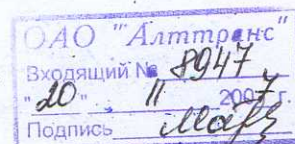 ОАО "Алттранс"
Входящий № 8947
"20" 11 2007 г.
Подпись